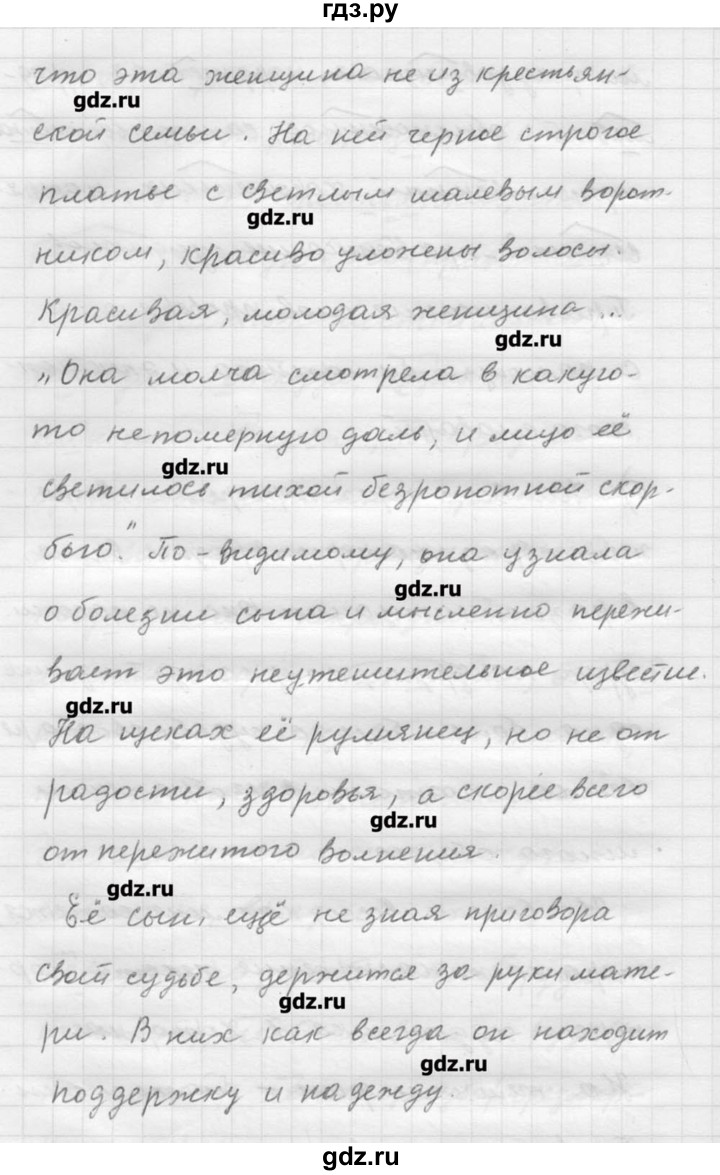 гдз.ру
что эта женщина не из крестьян-
gdz.ru
ской семьи. На ней черное строгое
платье с светлым шалевым ворот-
gdz.ru
ником, красиво уложены волосы.
Красивая, молодая женщина...
gdz.ru
„Она молча смотрела в какую-
то непомерную даль, и лицо её
gdz.ru
светилось тихой безропотной скор-
бью." По-видимому, она узнала
gdz.ru
о болезни сына и мысленно пережи-
вает это неутешительное известие.
gdz.ru
На щеках её румянец, но не от
радости, здоровья, а скорее всего
gdz.ru
от пережитого волнения.
gdz.ru
Её сын, ещё не зная приговора
своей судьбе, держится за руки мате-
gdz.ru
ри. В них как всегда он находит
gdz.ru
поддержку и надежду.
gdz.ru